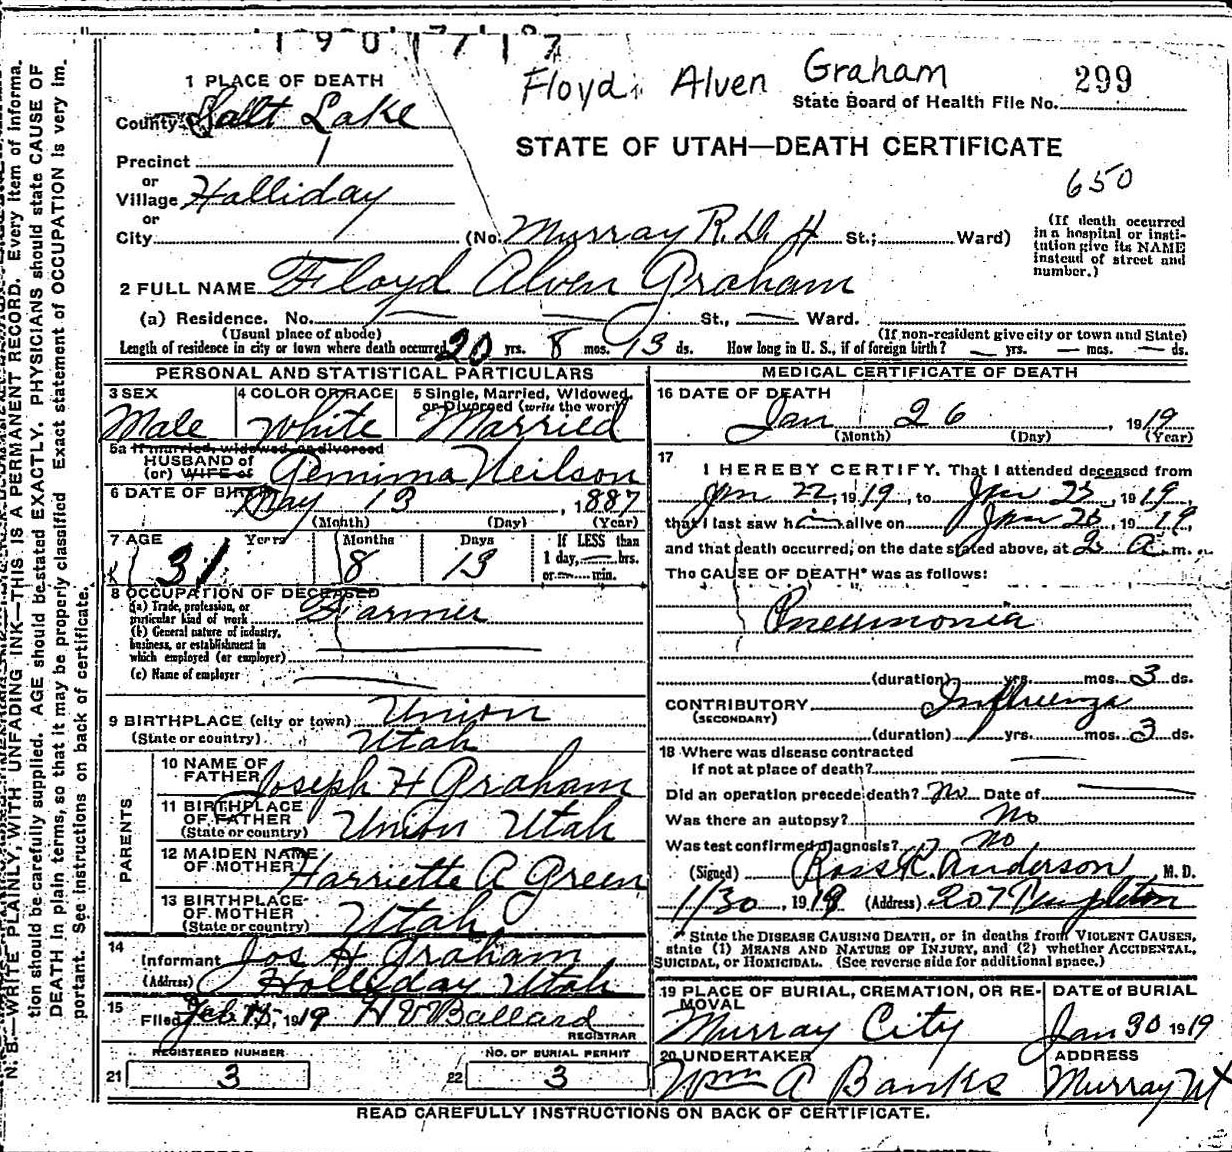 1 9 0 1 7 7 1 8 7
Floyd Alven Graham
299
State Board of Health File No.
STATE OF UTAH—DEATH CERTIFICATE
650
1 PLACE OF DEATH
County Salt Lake
Precinct 1
or
Village Halliday
or
City
(No. Murray R.D. 4 St.; Ward)
(If death occurred in a hospital or institution give its NAME instead of street and number.)
2 FULL NAME Floyd Alven Graham
(a) Residence. No. — — St., — Ward.
(Usual place of abode)
(If non-resident give city or town and State)
Length of residence in city or town where death occurred 20 yrs. 8 mos. 13 ds. How long in U. S., if of foreign birth? — yrs. — mos. — ds.
PERSONAL AND STATISTICAL PARTICULARS
3 SEX
Male
4 COLOR OR RACE
White
5 Single, Married, Widowed, or Divorced (write the word)
Married
5a If married, widowed, or divorced
HUSBAND of
(or) WIFE of
Gemima Neilson
6 DATE OF BIRTH May 13, 1887
(Month) (Day) (Year)
7 AGE Years Months Days If LESS than
31 8 13 1 day, — hrs.
or — min.
8 OCCUPATION OF DECEASED
(a) Trade, profession, or particular kind of work Farmer
(b) General nature of industry, business, or establishment in which employed (or employer)
(c) Name of employer
9 BIRTHPLACE (city or town) Union
(State or country) Utah
PARENTS
10 NAME OF FATHER Joseph H Graham
11 BIRTHPLACE OF FATHER (State or country) Union Utah
12 MAIDEN NAME OF MOTHER Harriette A Green
13 BIRTHPLACE OF MOTHER (State or country) Utah
14
Informant Jos H Graham
(Address) Holliday Utah
15
Filed Feb 15, 1919 H V Ballard
REGISTRAR
REGISTERED NUMBER
21 3
NO. OF BURIAL PERMIT
22 3
MEDICAL CERTIFICATE OF DEATH
16 DATE OF DEATH
Jan 26, 1919
(Month) (Day) (Year)
17
I HEREBY CERTIFY, That I attended deceased from
Jan 22, 1919, to Jan 25, 1919,
that I last saw him alive on Jan 25, 1919,
and that death occurred, on the date stated above, at 2 A m.
The CAUSE OF DEATH* was as follows:
Pneumonia
(duration) yrs. mos. 3 ds.
CONTRIBUTORY Influenza
(SECONDARY)
(duration) yrs. mos. 3 ds.
18 Where was disease contracted
if not at place of death? —
Did an operation precede death? No Date of —
Was there an autopsy? No
Was test confirmed diagnosis? No
(Signed) Ross K. Anderson M. D.
1/30, 1919 (Address) 207 Templeton
*State the DISEASE CAUSING DEATH, or in deaths from VIOLENT CAUSES,
state (1) MEANS AND NATURE OF INJURY, and (2) whether ACCIDENTAL,
SUICIDAL, or HOMICIDAL. (See reverse side for additional space.)
19 PLACE OF BURIAL, CREMATION, OR REMOVAL
Murray City
DATE of BURIAL
Jan 30 1919
20 UNDERTAKER
Wm A Banks
ADDRESS
Murray Ut
READ CAREFULLY INSTRUCTIONS ON BACK OF CERTIFICATE.
N. B.—WRITE PLAINLY, WITH UNFADING INK—THIS IS A PERMANENT RECORD. Every item of informa-
tion should be carefully supplied. AGE should be stated EXACTLY. PHYSICIANS should state CAUSE OF
DEATH in plain terms, so that it may be properly classified Exact statement of OCCUPATION is very im-
portant. See instructions on back of certificate.